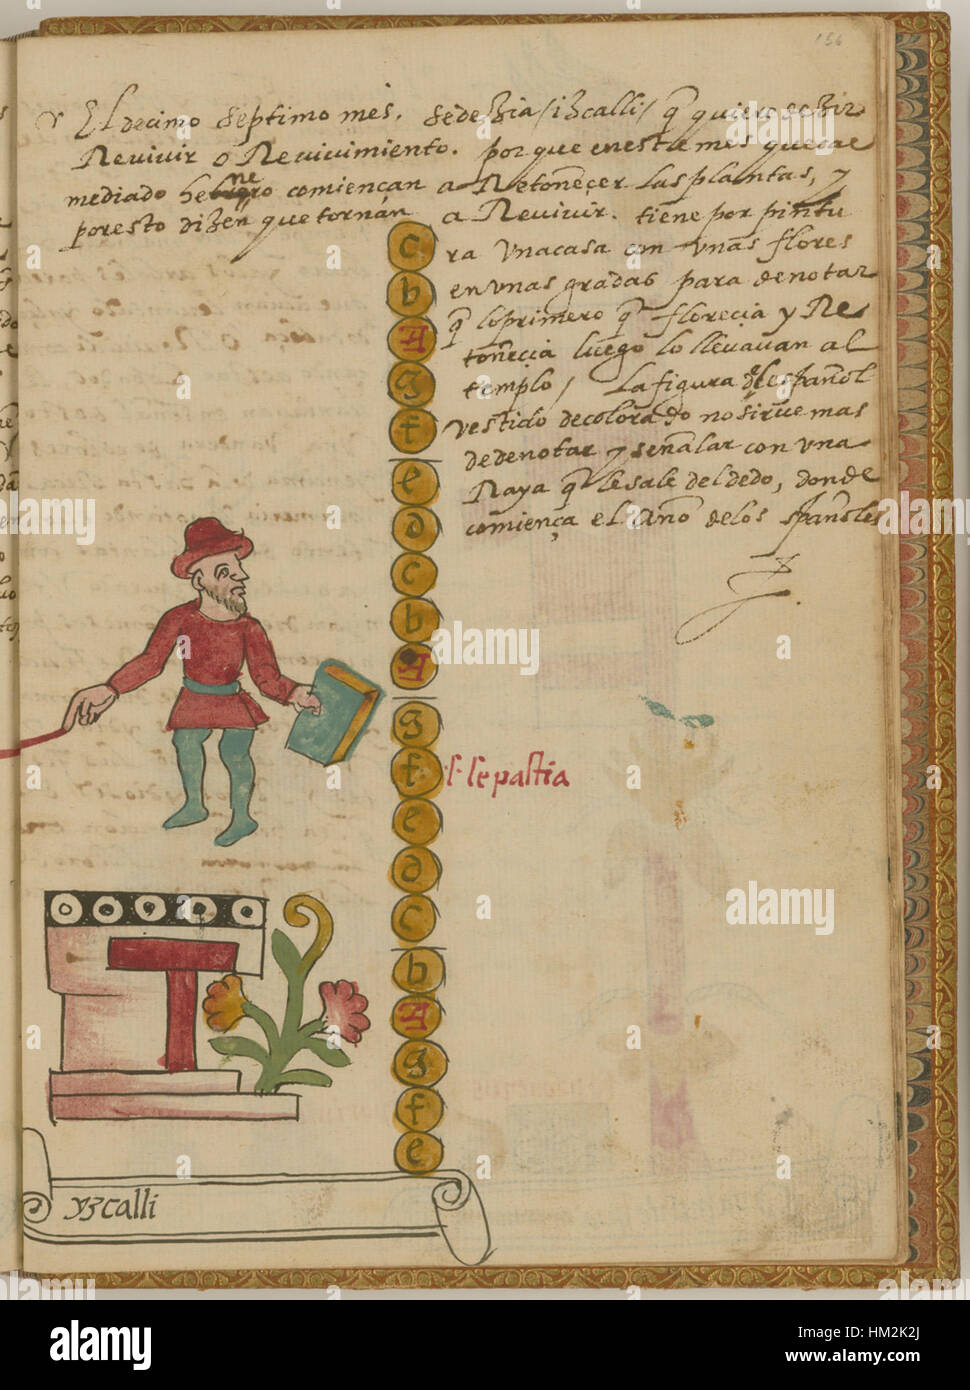 156
El decimo septimo mes, se dezia /izcalli/ q̃ quiere dezir
Revivir o Revivimiento. porque en este mes que cae
mediado henero comiençan a Retoñeçer las plantas, y
por esto dizen que tornan a Revivir. tiene por pintu
ra una casa con unas flores
en unas gradas para denotar
q̃ lo primero q̃ florecia y Re
toñecia luego lo llevavan al
templo / La figura del español
vestido de colorado no sirve mas
de denotar y señalar con una
Raya q̃ le sale del dedo, donde
comiença el año de los españoles
c
b
A
g
f
e
d
c
b
A
g
f
S. Sepastia
e
d
c
b
A
g
f
e
yzcalli
alamy
Image ID: HM2K2J
www.alamy.com